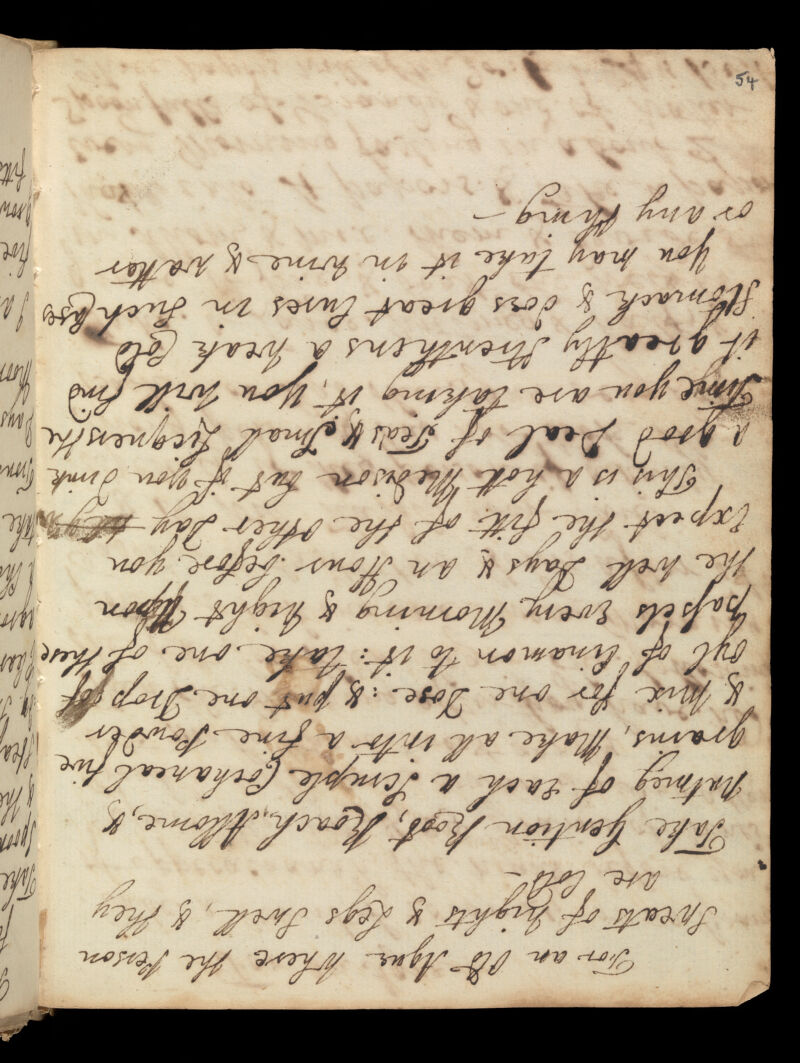 For an Old Ague Where the Person
Sweats of nights & Legs Swell, & they
are Cold –
Take Gention Root, Roach, Allome, &
Nutmeg of Each a Scruple Cochaneal five
grains, Make all into a fine Powder
& Mix for one Dose: & put one Drop of
oyl of Cinamon to it: take one of these
papers Every Morning & night upon
the well Days & an Hour before you
Expect the fitt of the other Day
This is a hott Medison but if you Drink
a good Deal of Teas & Smal Licquers the
Time you are taking it, you will find
it greatly Strenthens a weak Cold
Stomach & does great Cures in Such Cases
you may take it in Wine & watter
or any thing –
54